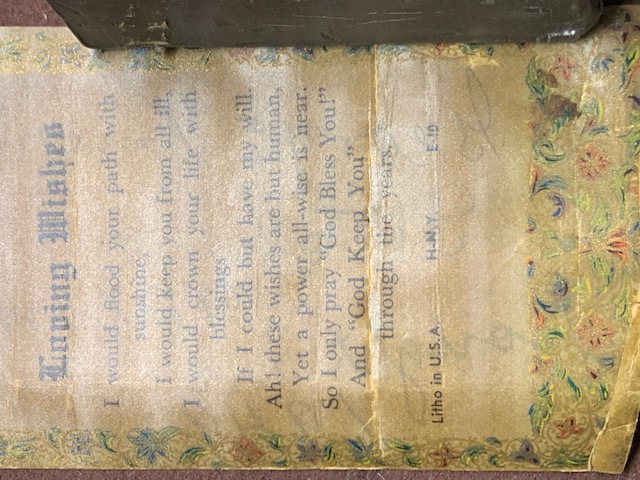 Loving Wishes
I would flood your path with
sunshine,
I would keep you from all ill,
I would crown your life with
blessings
If I could but have my will.
Ah! these wishes are but human,
Yet a power all-wise is near.
So I only pray "God Bless You!"
And "God Keep You"
through the years.
Litho in U.S.A. H-N.Y. E-10